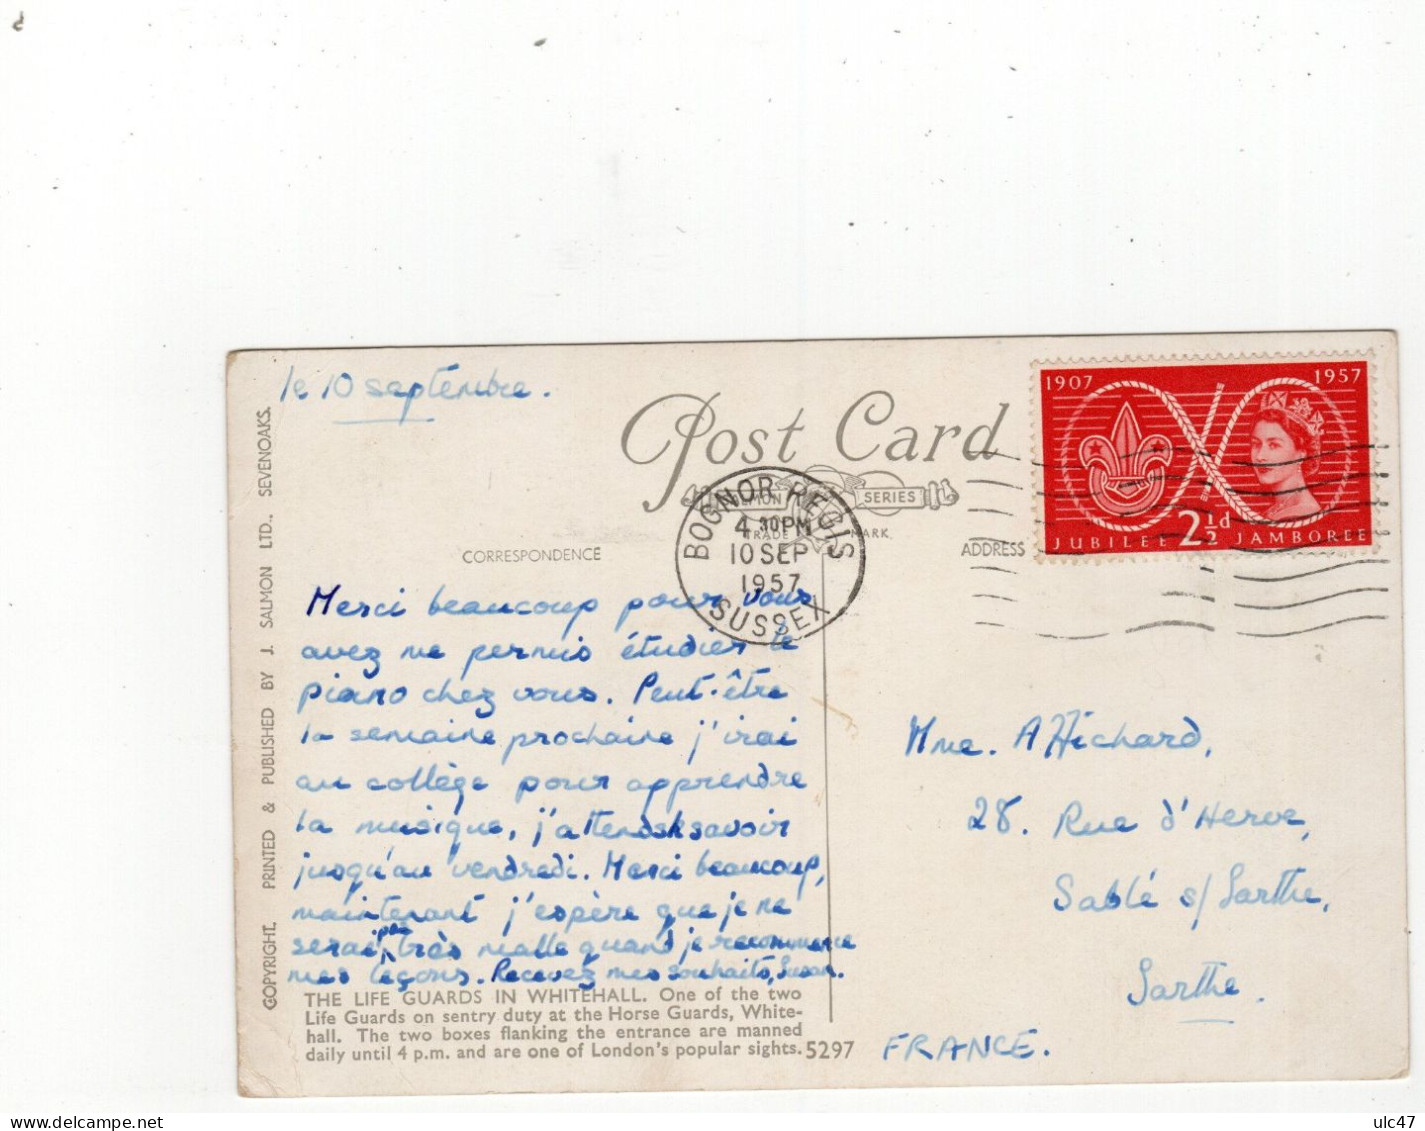 le 10 septembre.
Post Card
SALMON SERIES
TRADE MARK.
CORRESPONDENCE
ADDRESS
1907 1957
JUBILEE 2½d JAMBOREE
BOGNOR REGIS
4 30PM
10 SEP
1957
SUSSEX
Merci beaucoup pour vous
avez me permis étudier le
piano chez vous. Peut-être
la semaine prochaine j'irai
au collège pour apprendre
la musique, j'attends savoir
jusqu'au vendredi. Merci beaucoup,
maintenant j'espère que je ne
serai pas très malle quand je recommence
mes leçons. Recevez mes souhaits, Susan.
Mme. A Hichard,
28. Rue d'Herve,
Sablé s/ Sarthe,
Sarthe.
FRANCE.
THE LIFE GUARDS IN WHITEHALL. One of the two
Life Guards on sentry duty at the Horse Guards, White-
hall. The two boxes flanking the entrance are manned
daily until 4 p.m. and are one of London's popular sights. 5297
COPYRIGHT. PRINTED & PUBLISHED BY J. SALMON LTD., SEVENOAKS.
delcampe.net
ulc47